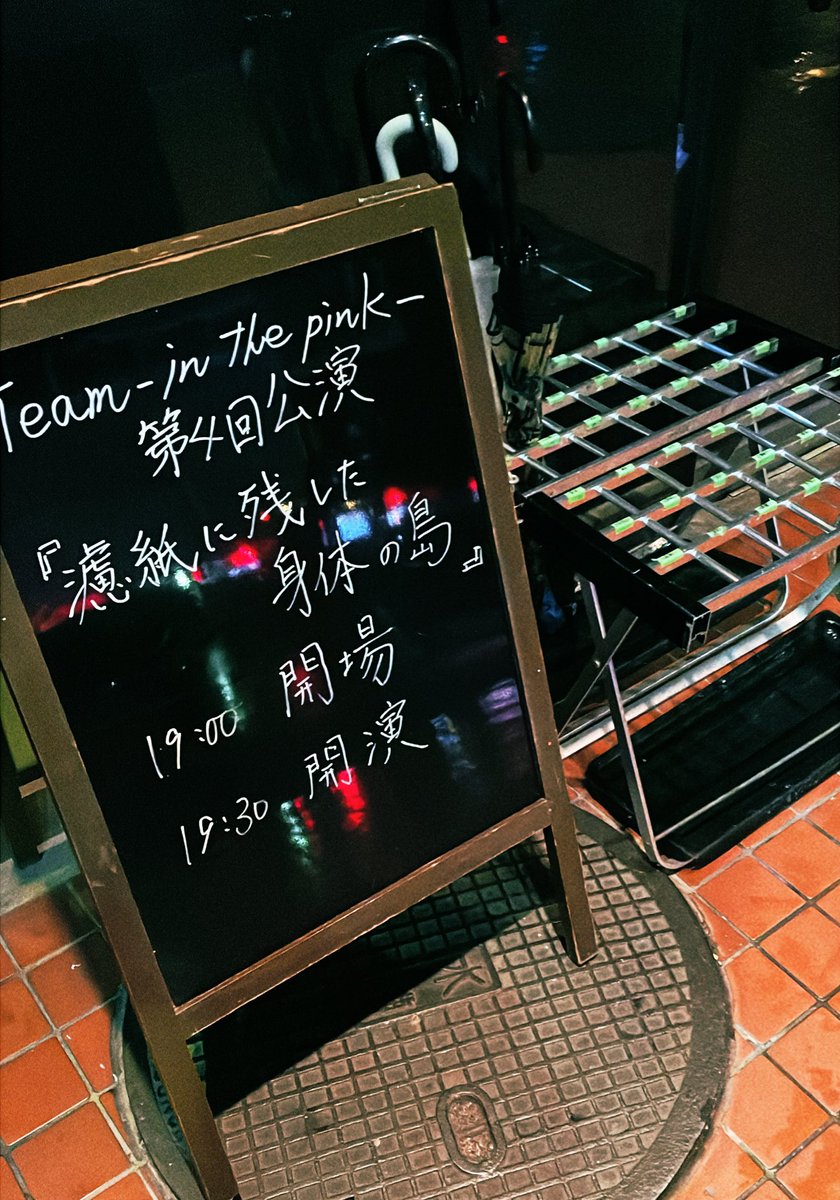 Team-in the pink-
第4回公演
『濾紙に残した
身体の島』
19:00 開場
19:30 開演
水